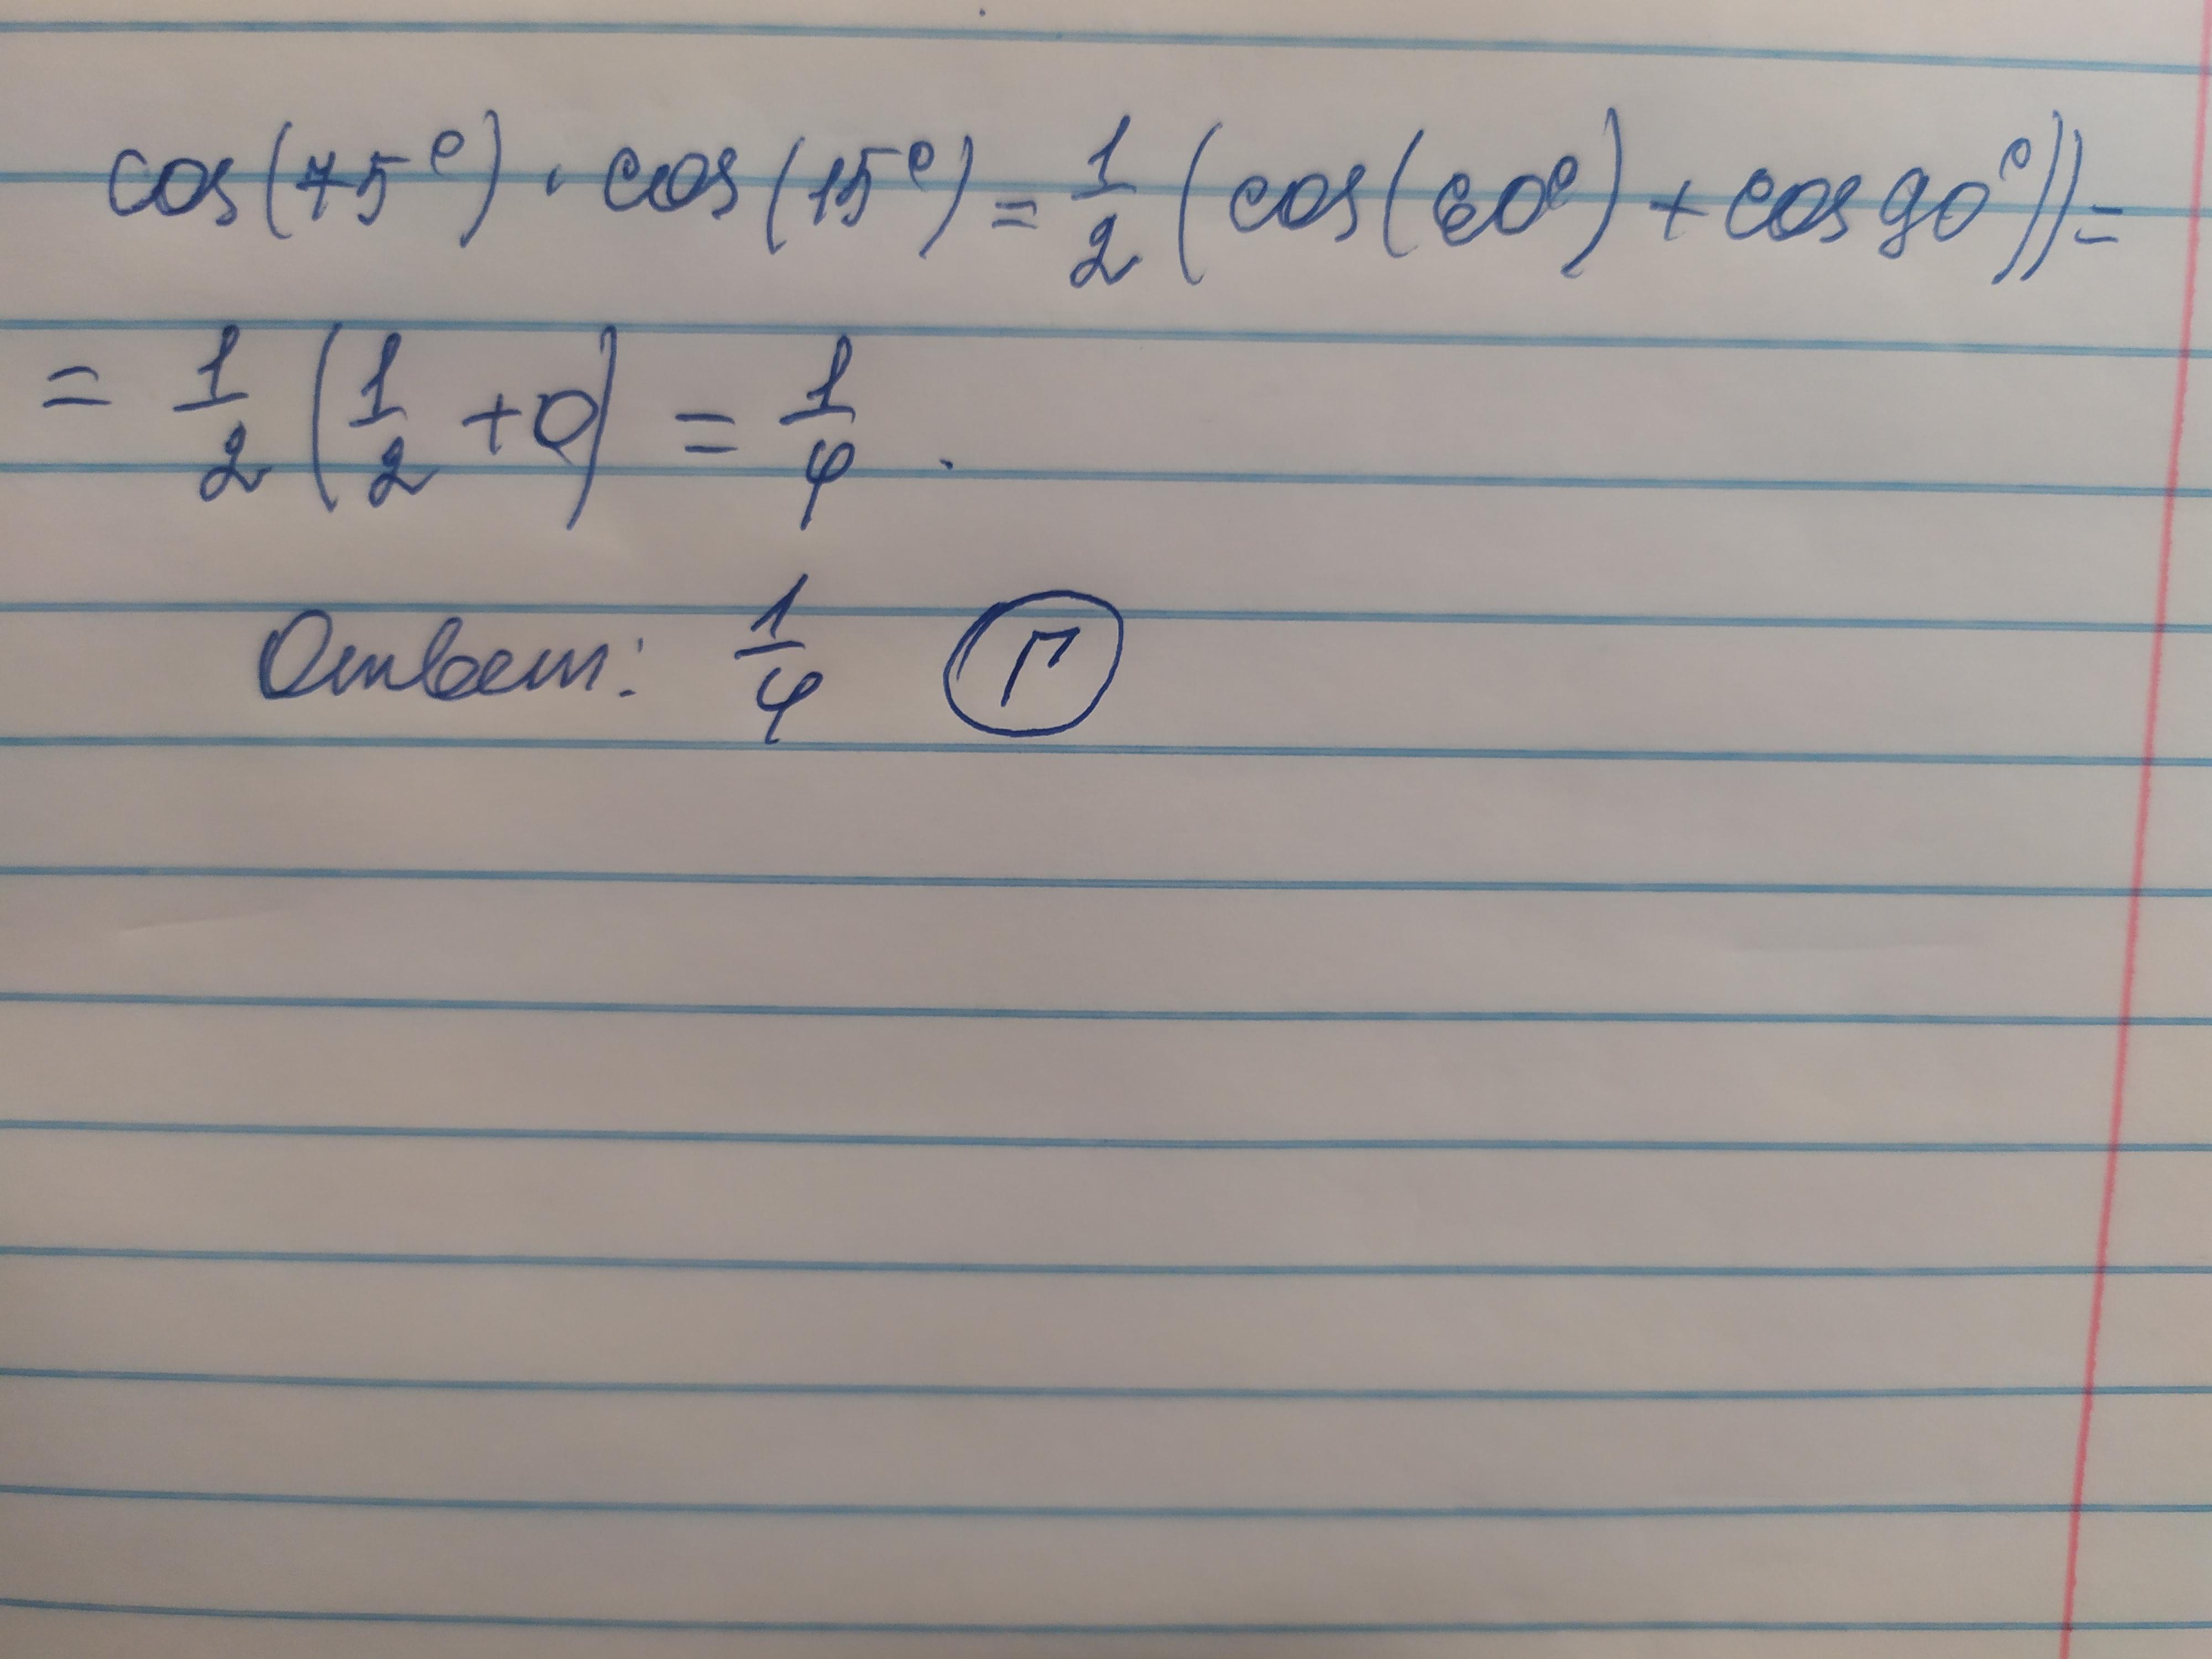 cos(75°) · cos(15°) = 1/2 (cos(60°) + cos 90°)) =
= 1/2 (1/2 + 0) = 1/4 .
Ответ: 1/4 Г